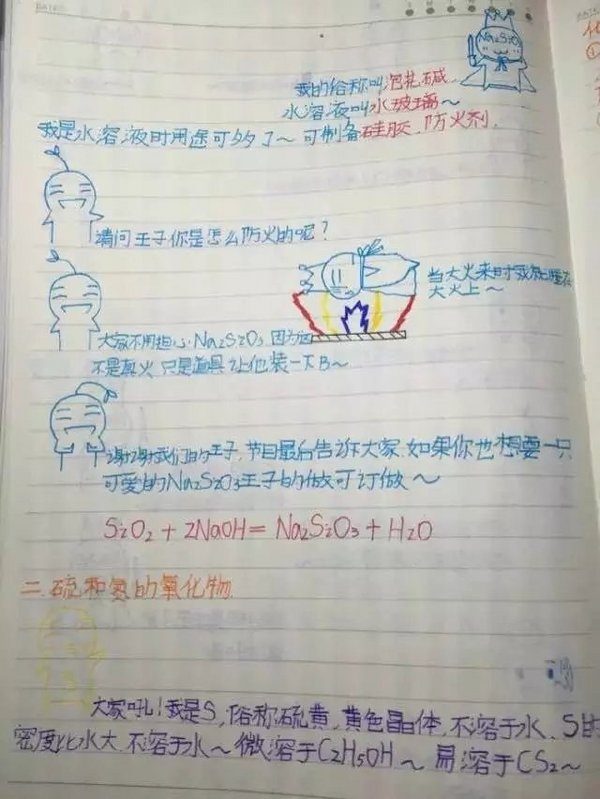 DATE
Na2SiO3
我的俗称叫泡花碱
水溶液叫水玻璃～
我是水溶液时用途可多了～可制备硅胶,防火剂.
请问王子你是怎么防火的呢?
当大火来时我就睡在
大火上～
大家不用担心Na2SiO3 因为这
不是真火 只是道具 让他装一下B～
谢谢我们的王子,节目最后告诉大家,如果你也想要一只
可爱的Na2SiO3王子的做可订做～
SiO2 + 2NaOH = Na2SiO3 + H2O
二.硫和氮的氧化物.
大家好!我是S,俗称硫黄,黄色晶体,不溶于水、S的
密度比水大,不溶于水～微溶于C2H5OH～易溶于CS2～